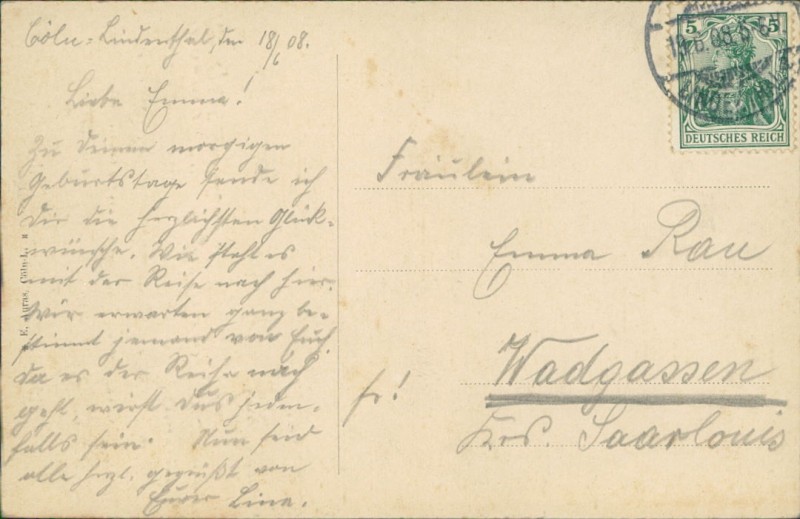 Cöln-Lindenthal, den 18/6 08.
Liebe Emma!
Zu Deinem morgigen
Geburtstage sende ich
Dir die herzlichsten Glück-
wünsche. Wie steht es
mit der Reise nach hier.
Wir erwarten ganz be-
stimmt jemand von Euch
da es der Reihe nach
geht, wirst Du's jeden-
falls sein. Nun seid
alle herzl. gegrüßt von
Eurer Lina.
Fräulein
Emma Rau
Wadgassen
fr!
Krs. Saarlouis
5 5
DEUTSCHES REICH
Cöln-L.